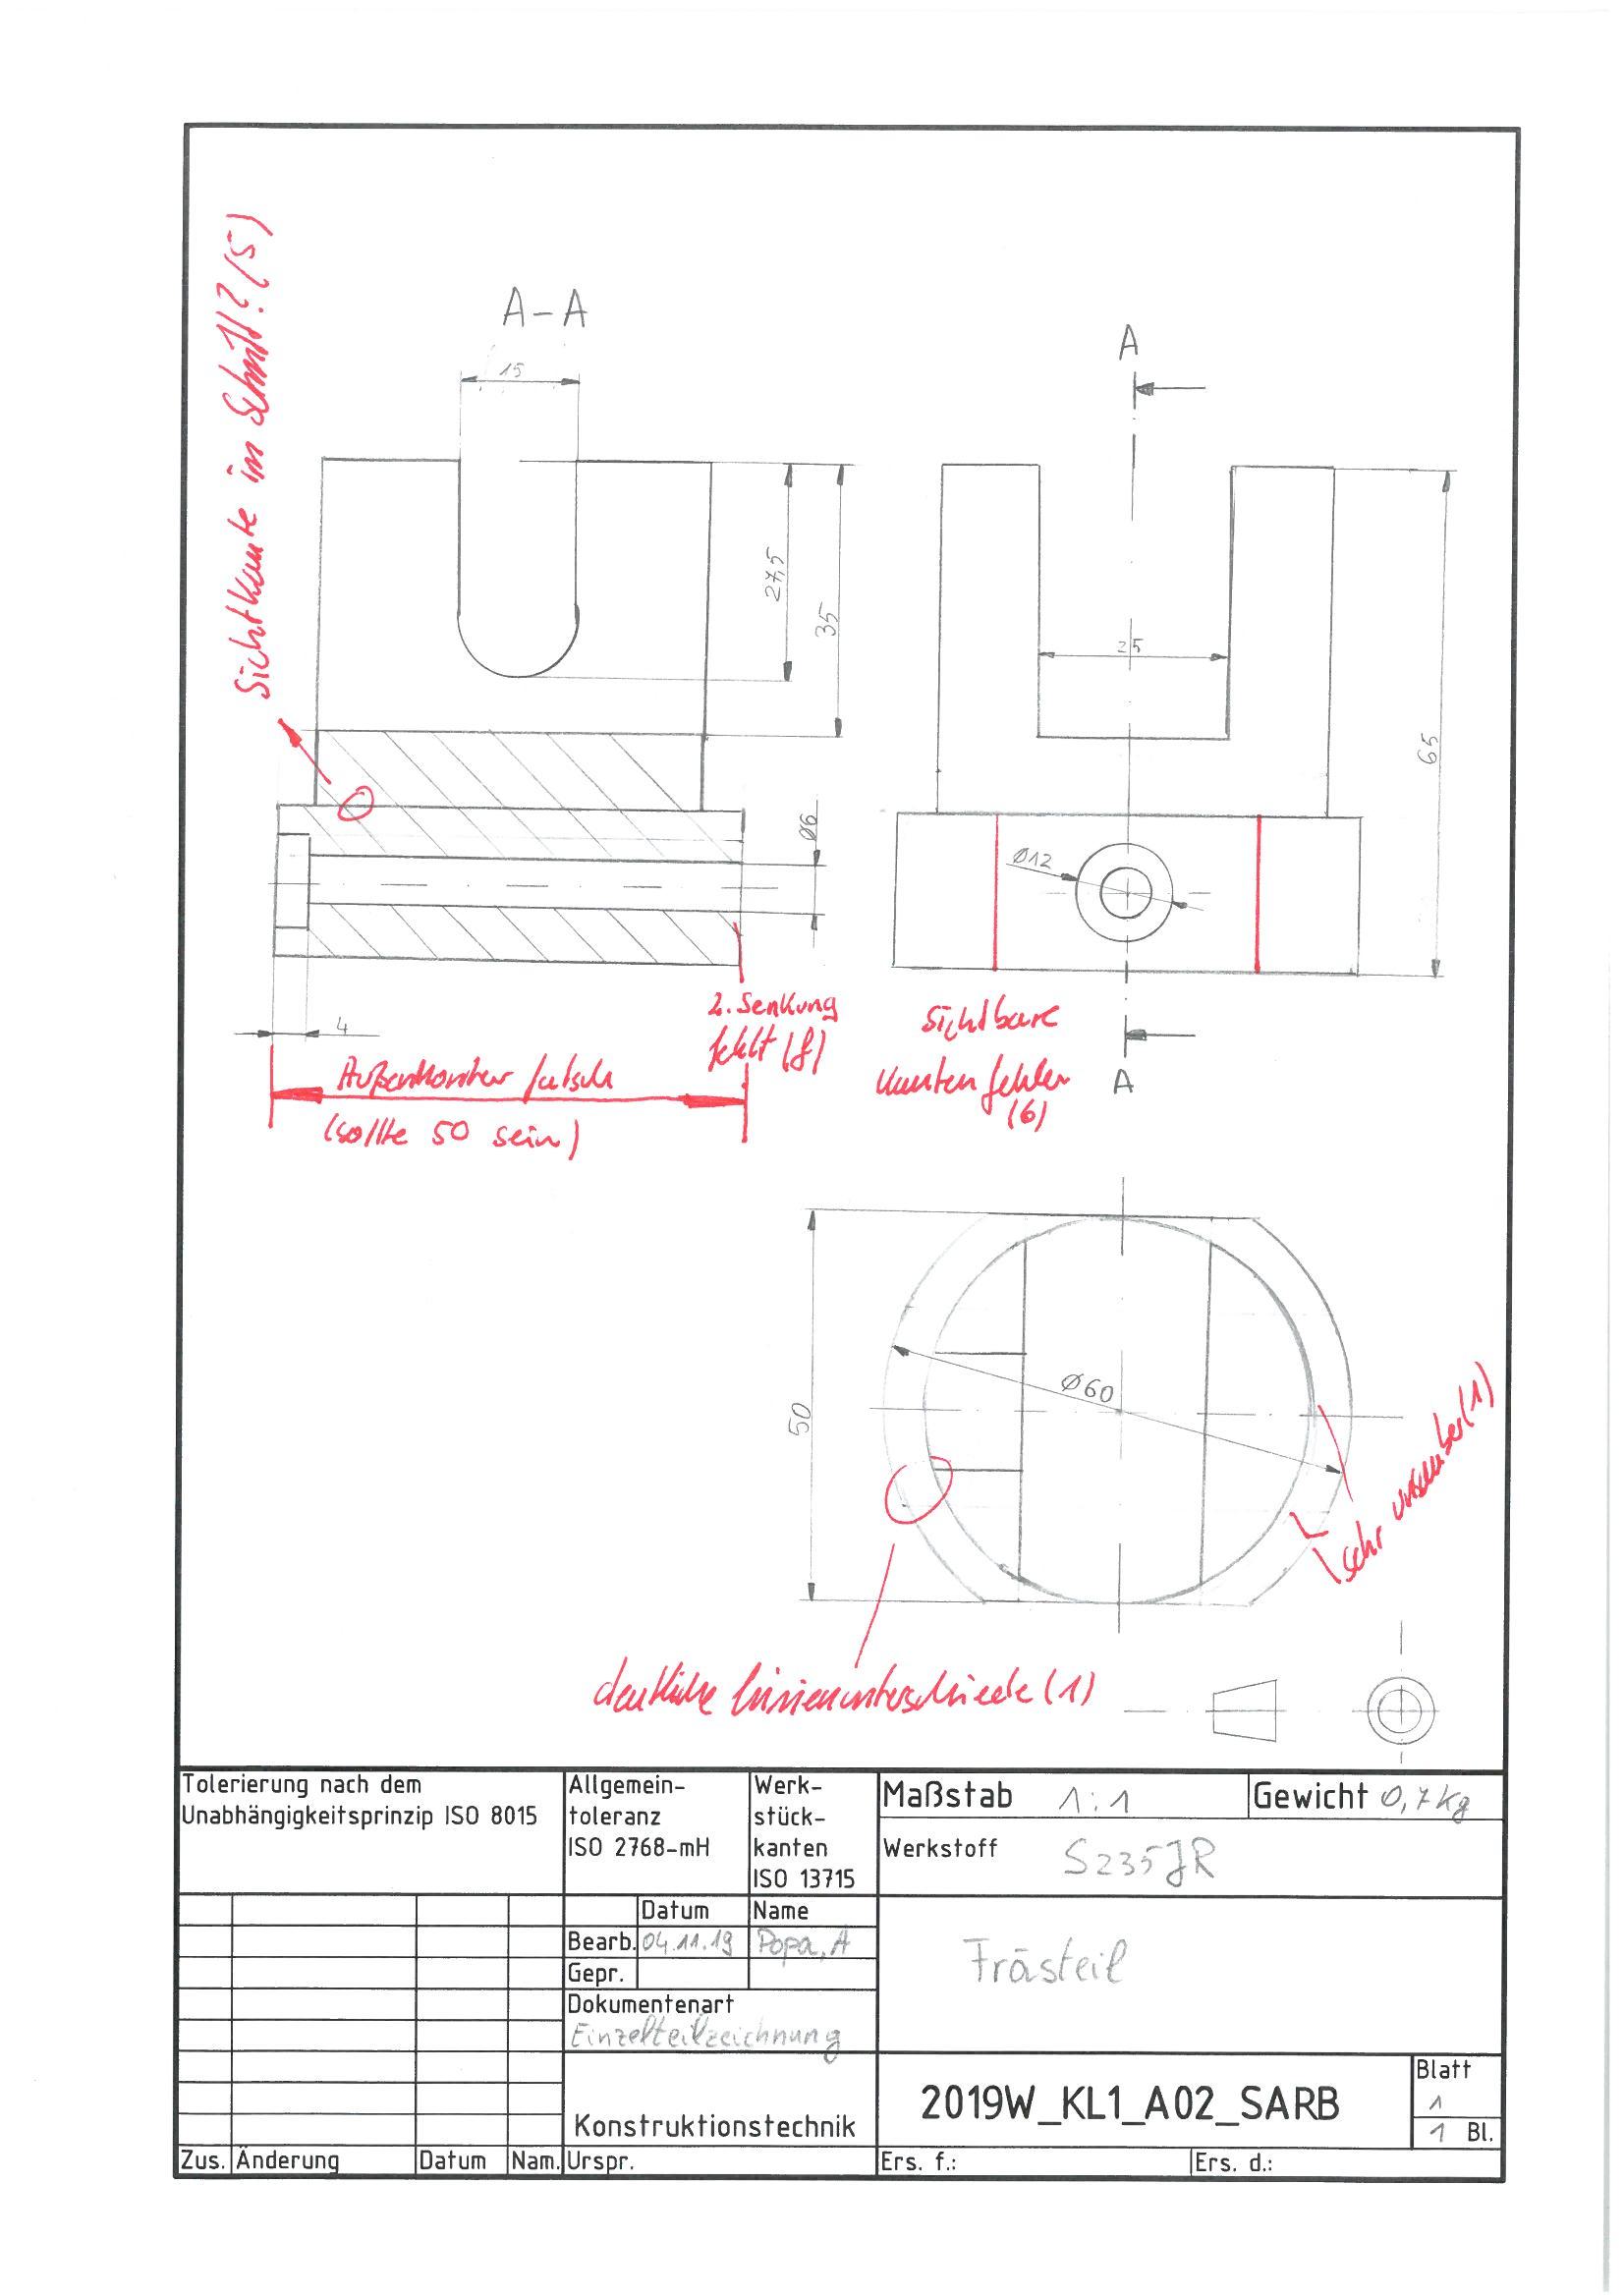 Sichtkante im Schnitt? (5)
A-A
15
27,5
35
Ø6
4
2. Senkung
fehlt (8)
Außenkontur falsch
(sollte 50 sein)
A
25
65
Ø12
Sichtbare
Kanten fehlen
(6)
A
50
Ø60
sehr unsauber (1)
deutliche Linienunterschiede (1)
Tolerierung nach dem
Unabhängigkeitsprinzip ISO 8015
Allgemein-
toleranz
ISO 2768-mH
Werk-
stück-
kanten
ISO 13715
Maßstab 1:1
Gewicht 0,7kg
Werkstoff S235JR
Datum Name
Bearb. 04.11.19 Popa, A
Gepr.
Dokumentenart
Einzelteilzeichnung
Frästeil
Konstruktionstechnik
2019W_KL1_A02_SARB
Blatt
1
1 Bl.
Zus. Änderung Datum Nam. Urspr. Ers. f.: Ers. d.: